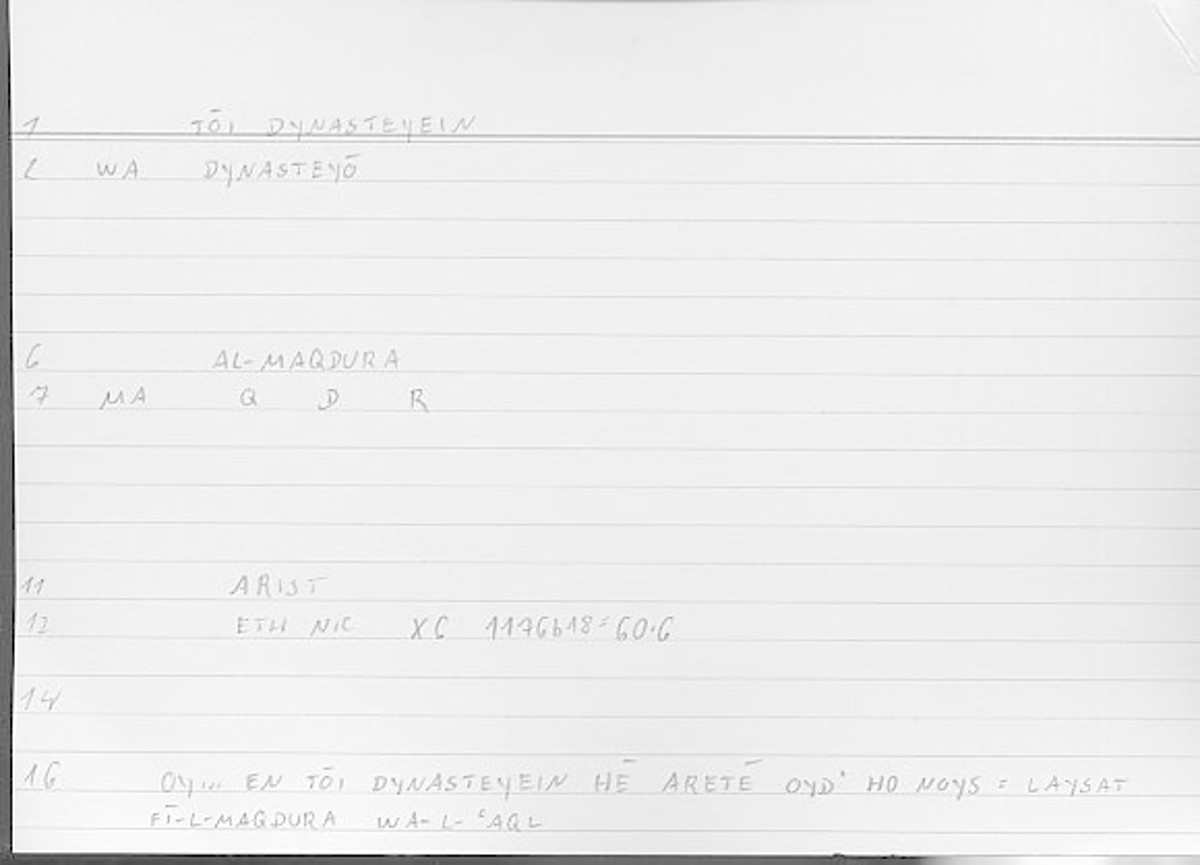 1 TŌI DYNASTEYEIN
2 WA DYNASTEYŌ
6 AL-MAQDURA
7 MA Q D R
11 ARIST
12 ETH NIC X6 1176b18=60.6
14
16 OY... EN TŌI DYNASTEYEIN HĒ ARETĒ OYD' HO NOYS = LAYSAT
FĪ-L-MAQDURA WA-L-ʿAQL